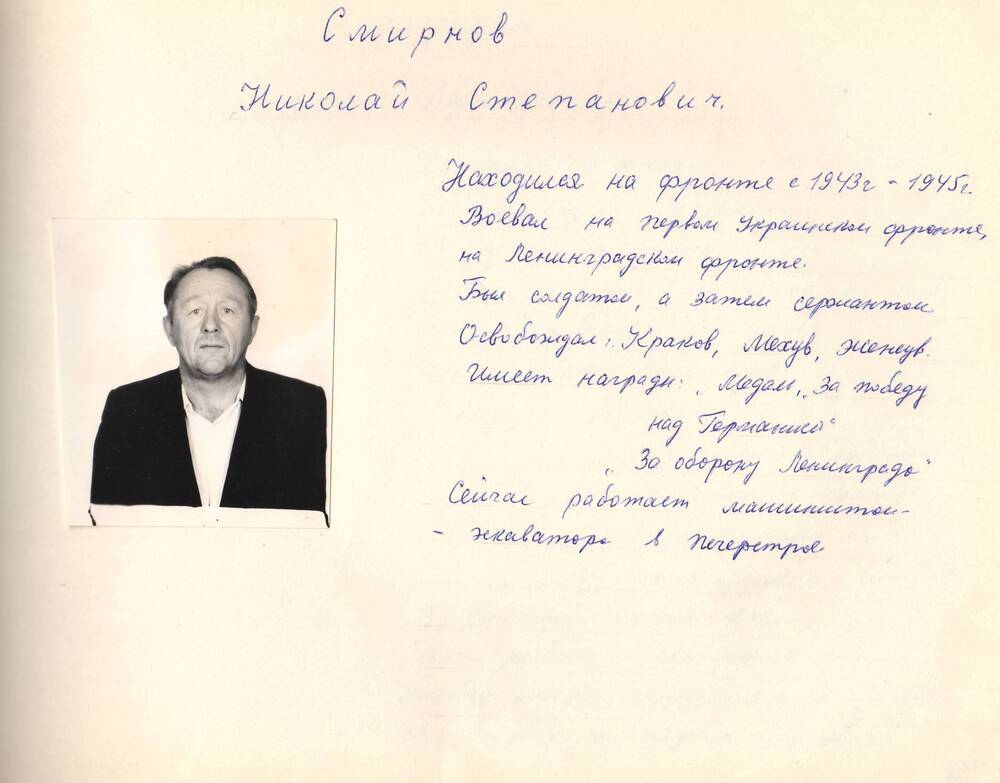 Смирнов
Николай Степанович.
Находился на фронте с 1943г - 1945г.
Воевал на первом Украинском фронте,
на Ленинградском фронте.
Был солдатом, а затем сержантом
Освобождал: Краков, Мехув, Женсув.
Имеет награды: „Медаль „За победу
над Германией"
„За оборону Ленинграда"
Сейчас работает машинистом-
- экскаватора в Печерстрое